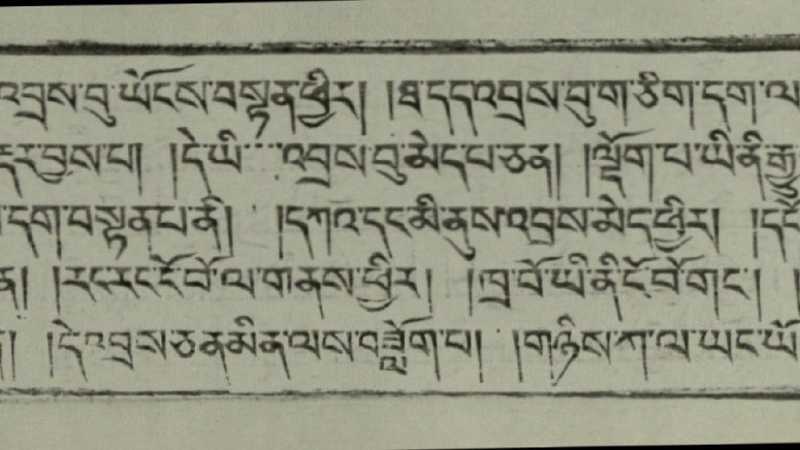 འབྲས་བུ་ཡོངས་བསྟན་ཕྱིར། །ཐ་དད་འབྲས་བུ་ག་ཅིག་དག་ལ
རྡར་བྱས་པ། །དེ་ཡི་འབྲས་བུ་མེད་པ་ཅན། །ལྡོག་པ་ཡི་ནི་རྒྱུ
དག་བསྟན་པ་ནི། །དཀའ་དང་མི་ནུས་འབྲས་མེད་ཕྱིར། །དངོ
ན། །རང་རང་ངོ་བོ་ལ་གནས་ཕྱིར། །ཁྲ་བོ་ཡི་ནི་ངོ་བོ་གང་། །
། །དེ་འབྲས་ཅན་མིན་ལས་བཟློག་པ། །གཉིས་ཀ་ལ་ཡང་ཡོ